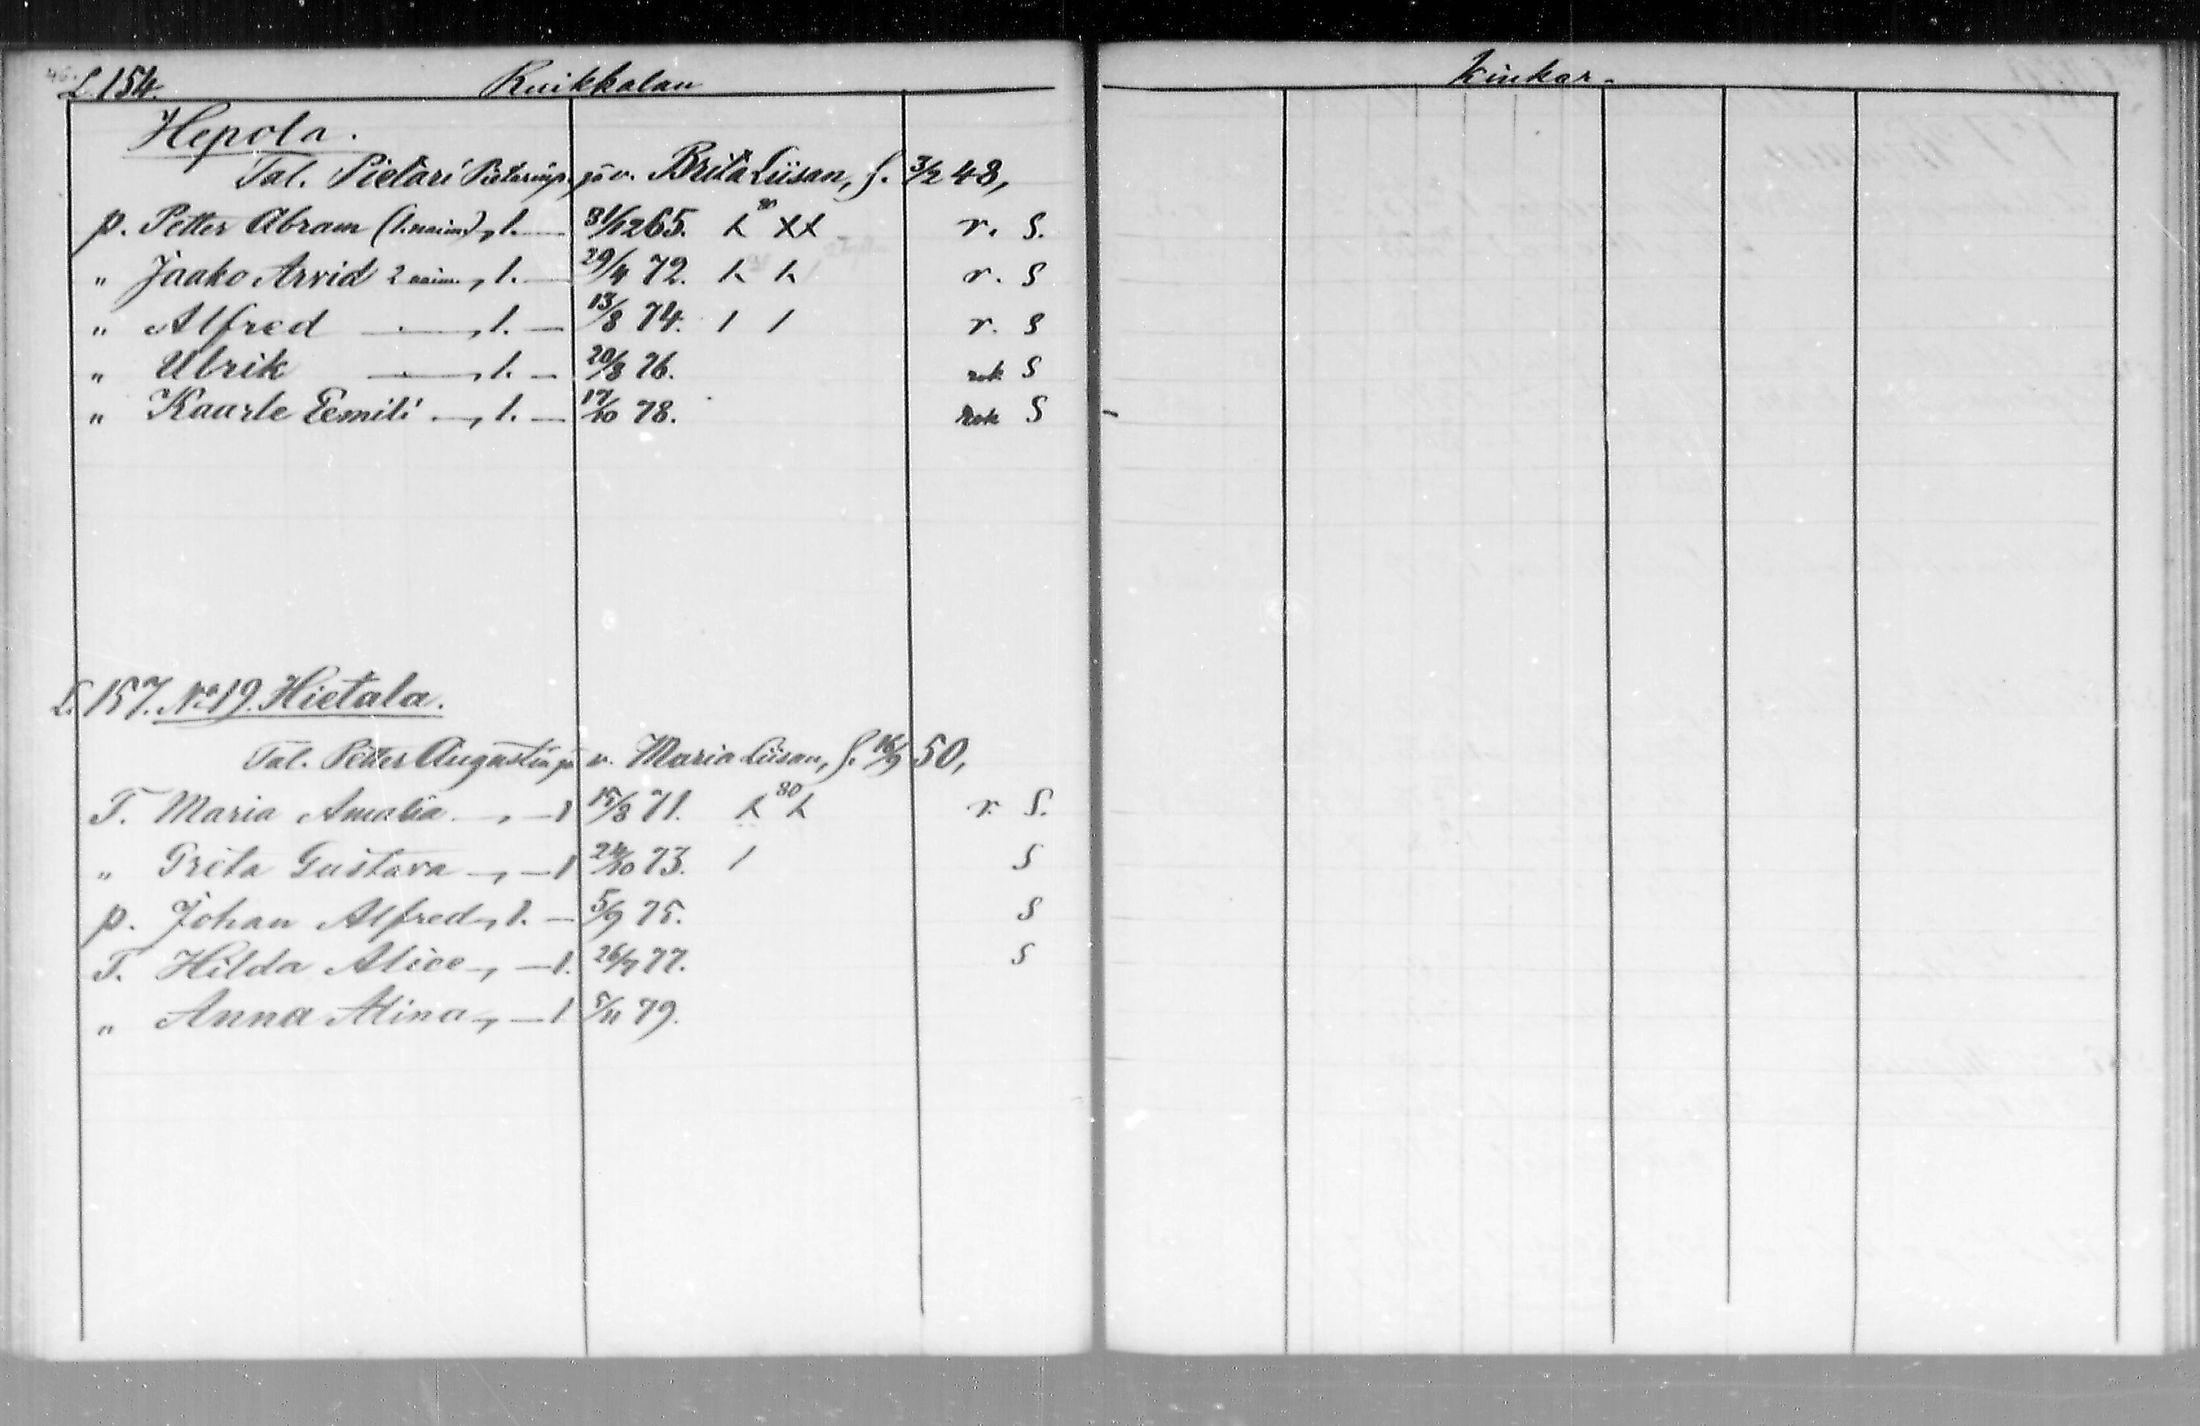 L. 154. Kuikkalan
Hepola.
Tal. Pietari Pietarinp. ja v. Brita Liisan, s. 3/2 48,
p. Petter Abram (1. naim.), s. 31/12 65. r. S.
" Jaako Arvid 2 naim., s. 29/4 72. r. S
" Alfred —„— s. 13/8 74. r. S
" Ulrik —„— s. 20/8 76. rok S
" Kaarle Eemili —„ s. 17/10 78. Rok S
L. 157. No 19. Hietala.
Tal. Petter Augustin ja v. Maria Liisan, s. 16/9 50,
T. Maria Amalia —„— s 15/8 71. 80 r. S.
" Greta Gustava —„— s 24/10 73. S
p. Johan Alfred „ s. 5/9 75. S
T. Hilda Alice „— s. 26/7 77. S
" Anna Alina „— s 5/11 79.
kinkar.